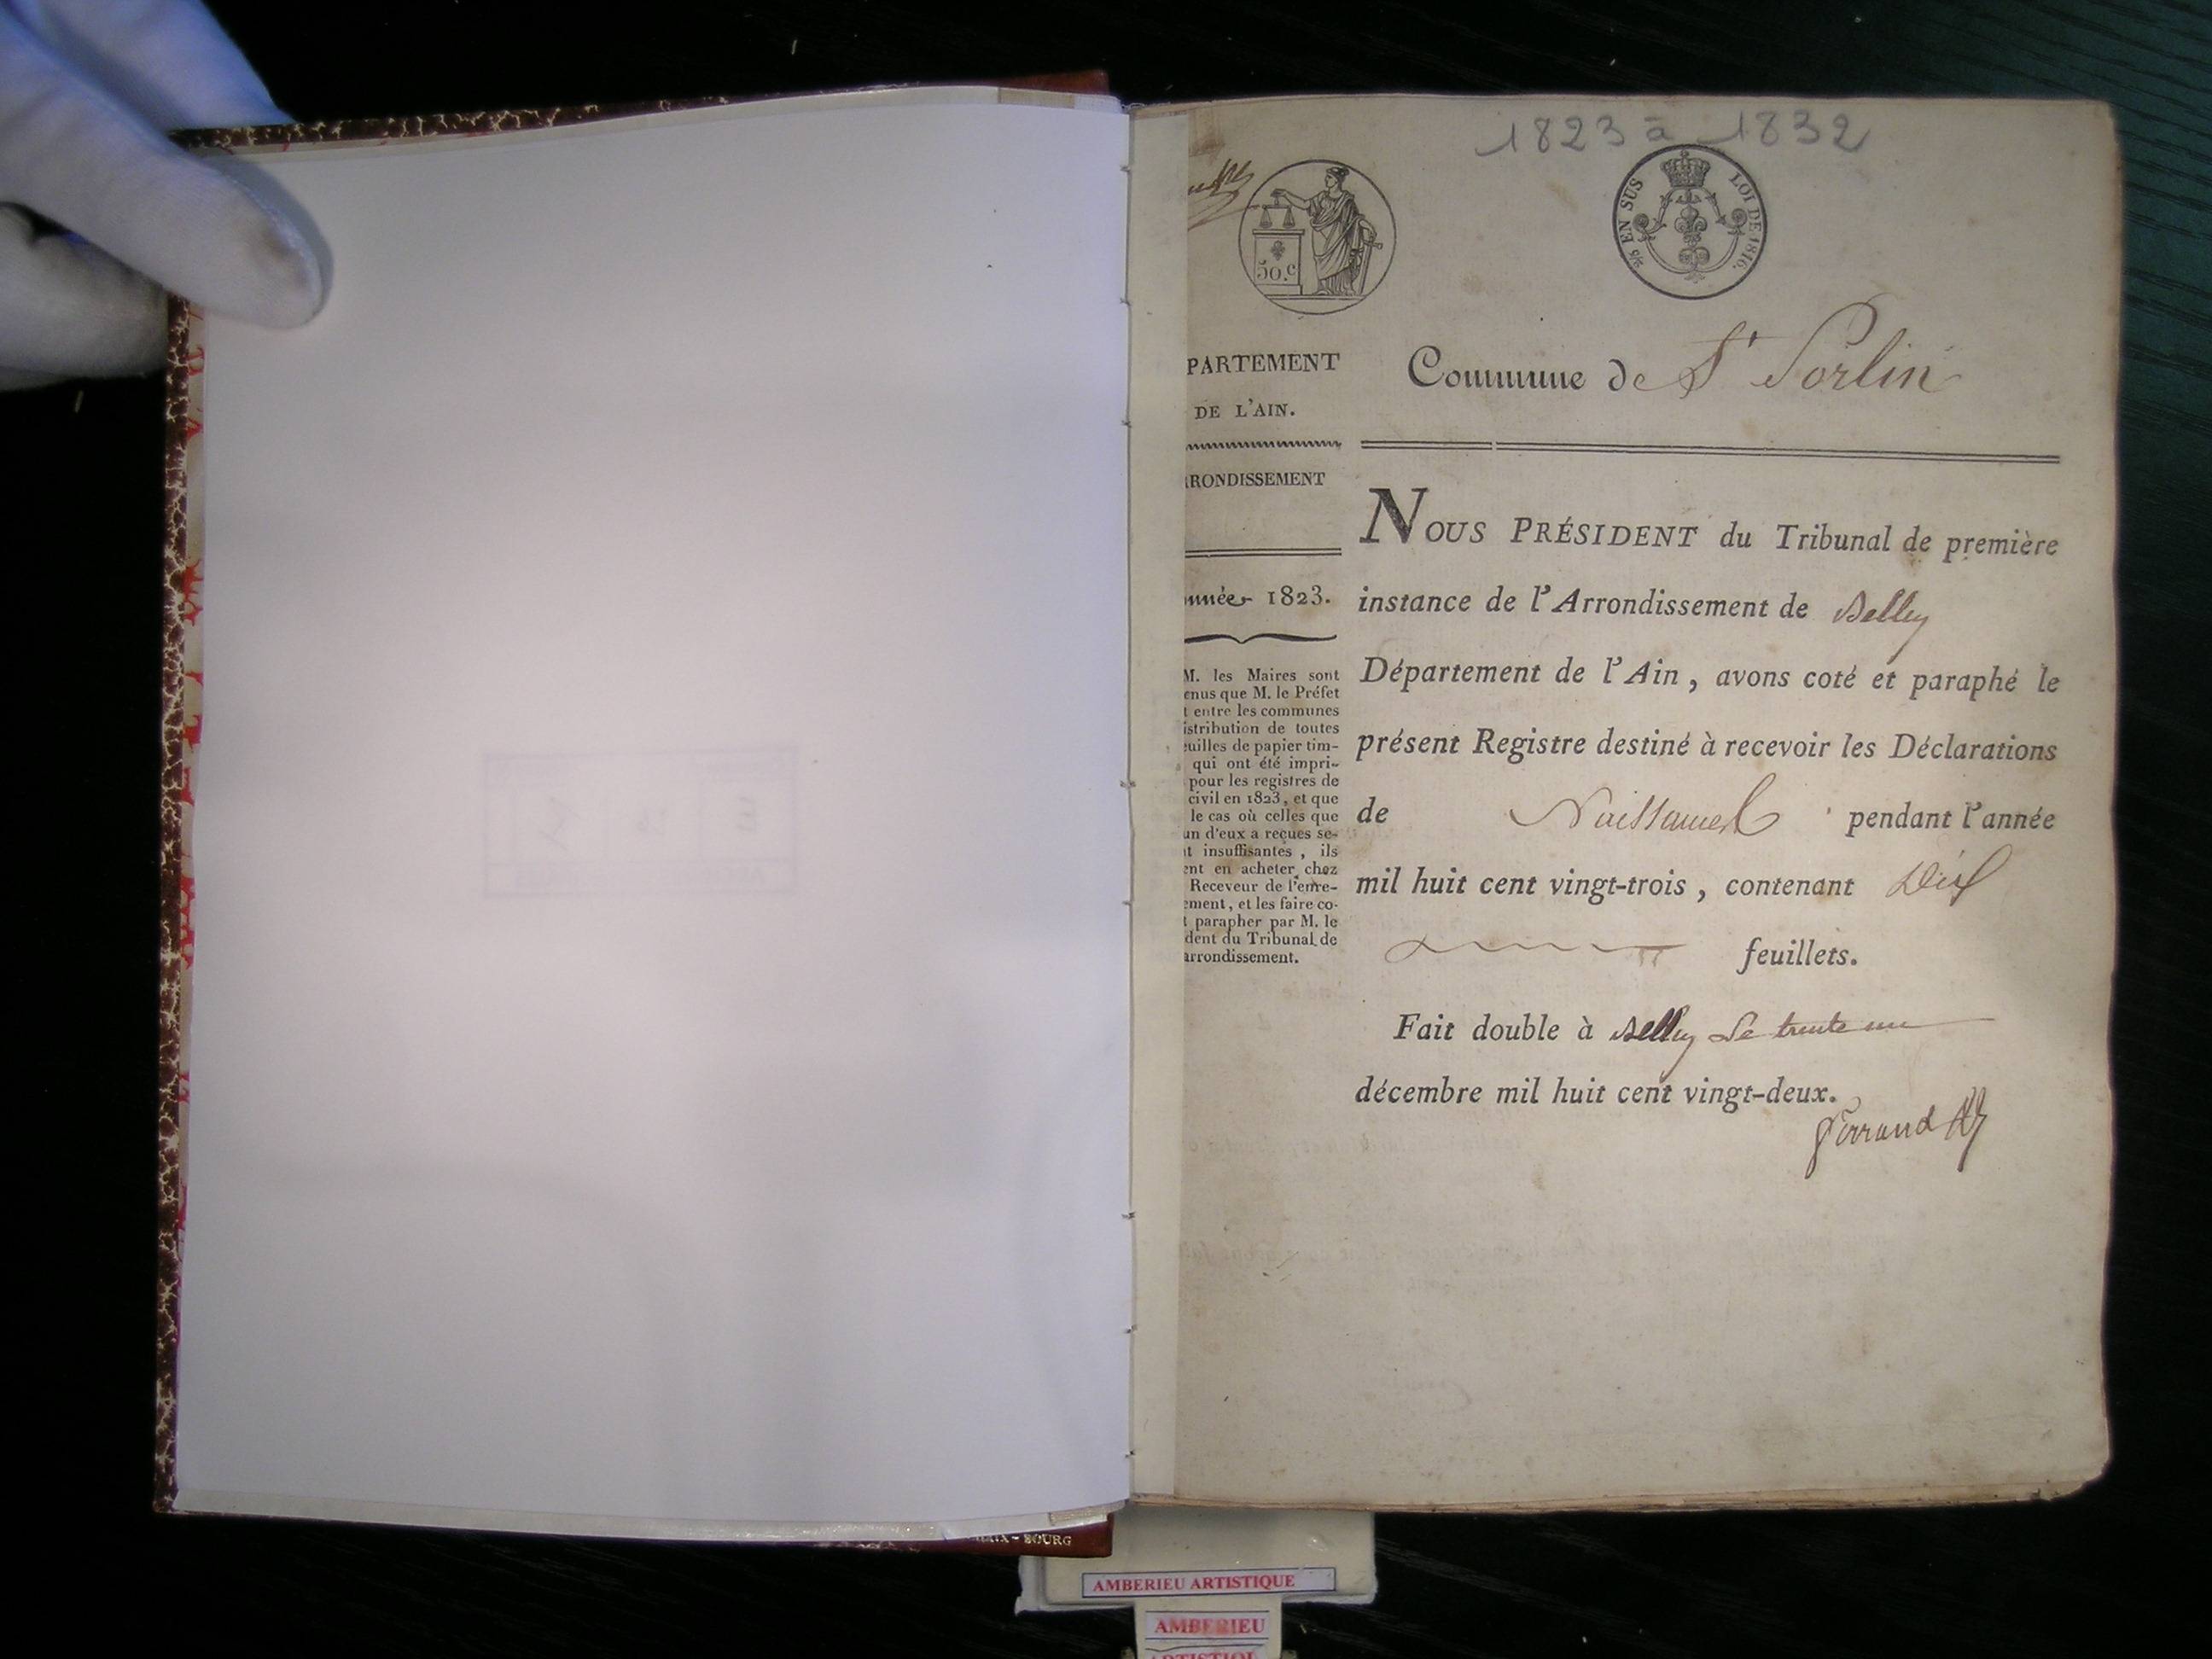 1823 à 1832
50.c
EN SUS
LOI DE 1816.
PARTEMENT
DE L'AIN.
RRONDISSEMENT
nnée 1823.
M. les Maires sont
enus que M. le Préfet
t entre les communes
istribution de toutes
euilles de papier tim-
qui ont été impri-
pour les registres de
civil en 1823, et que
le cas où celles que
un d'eux a reçues se-
nt insuffisantes, ils
ent en acheter chez
Receveur de l'enre-
ement, et les faire co-
t parapher par M. le
dent du Tribunal de
arrondissement.
Commune de St Sorlin
NOUS PRÉSIDENT du Tribunal de première
instance de l'Arrondissement de Belley
Département de l'Ain, avons coté et paraphé le
présent Registre destiné à recevoir les Déclarations
de Naissances pendant l'année
mil huit cent vingt-trois, contenant Dix
feuillets.
Fait double à Belley Le trente un
décembre mil huit cent vingt-deux.
- BOURG
AMBERIEU ARTISTIQUE
AMBERIEU
ARTISTIQU